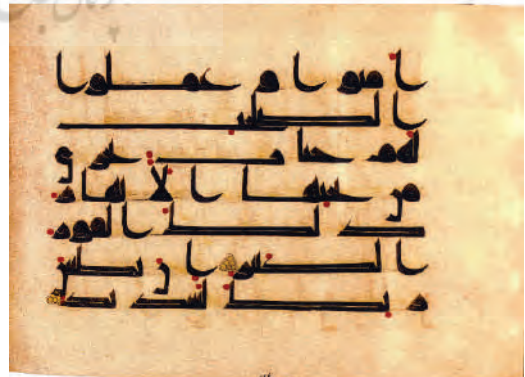 امنوا وعملوا
الصلحت
لهم جنت تجري
من تحتها الانهر
ذلك الفوز
الكبير ان بطش
ربك لشديد انه